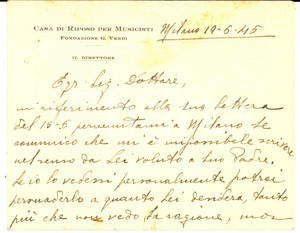 Casa di Riposo per Musicisti
Fondazione G. Verdi
Il Direttore
Milano 19-6-45
Egr. Sig. Dottore,
in riferimento alla sua lettera
del 15-5 pervenutami a Milano Le
comunico che mi è impossibile scrivere
nel senso da Lei voluto a suo Padre.
Se io lo vedessi personalmente potrei
persuaderlo a quanto Lei desidera, tanto
più che non vedo la ragione, ma